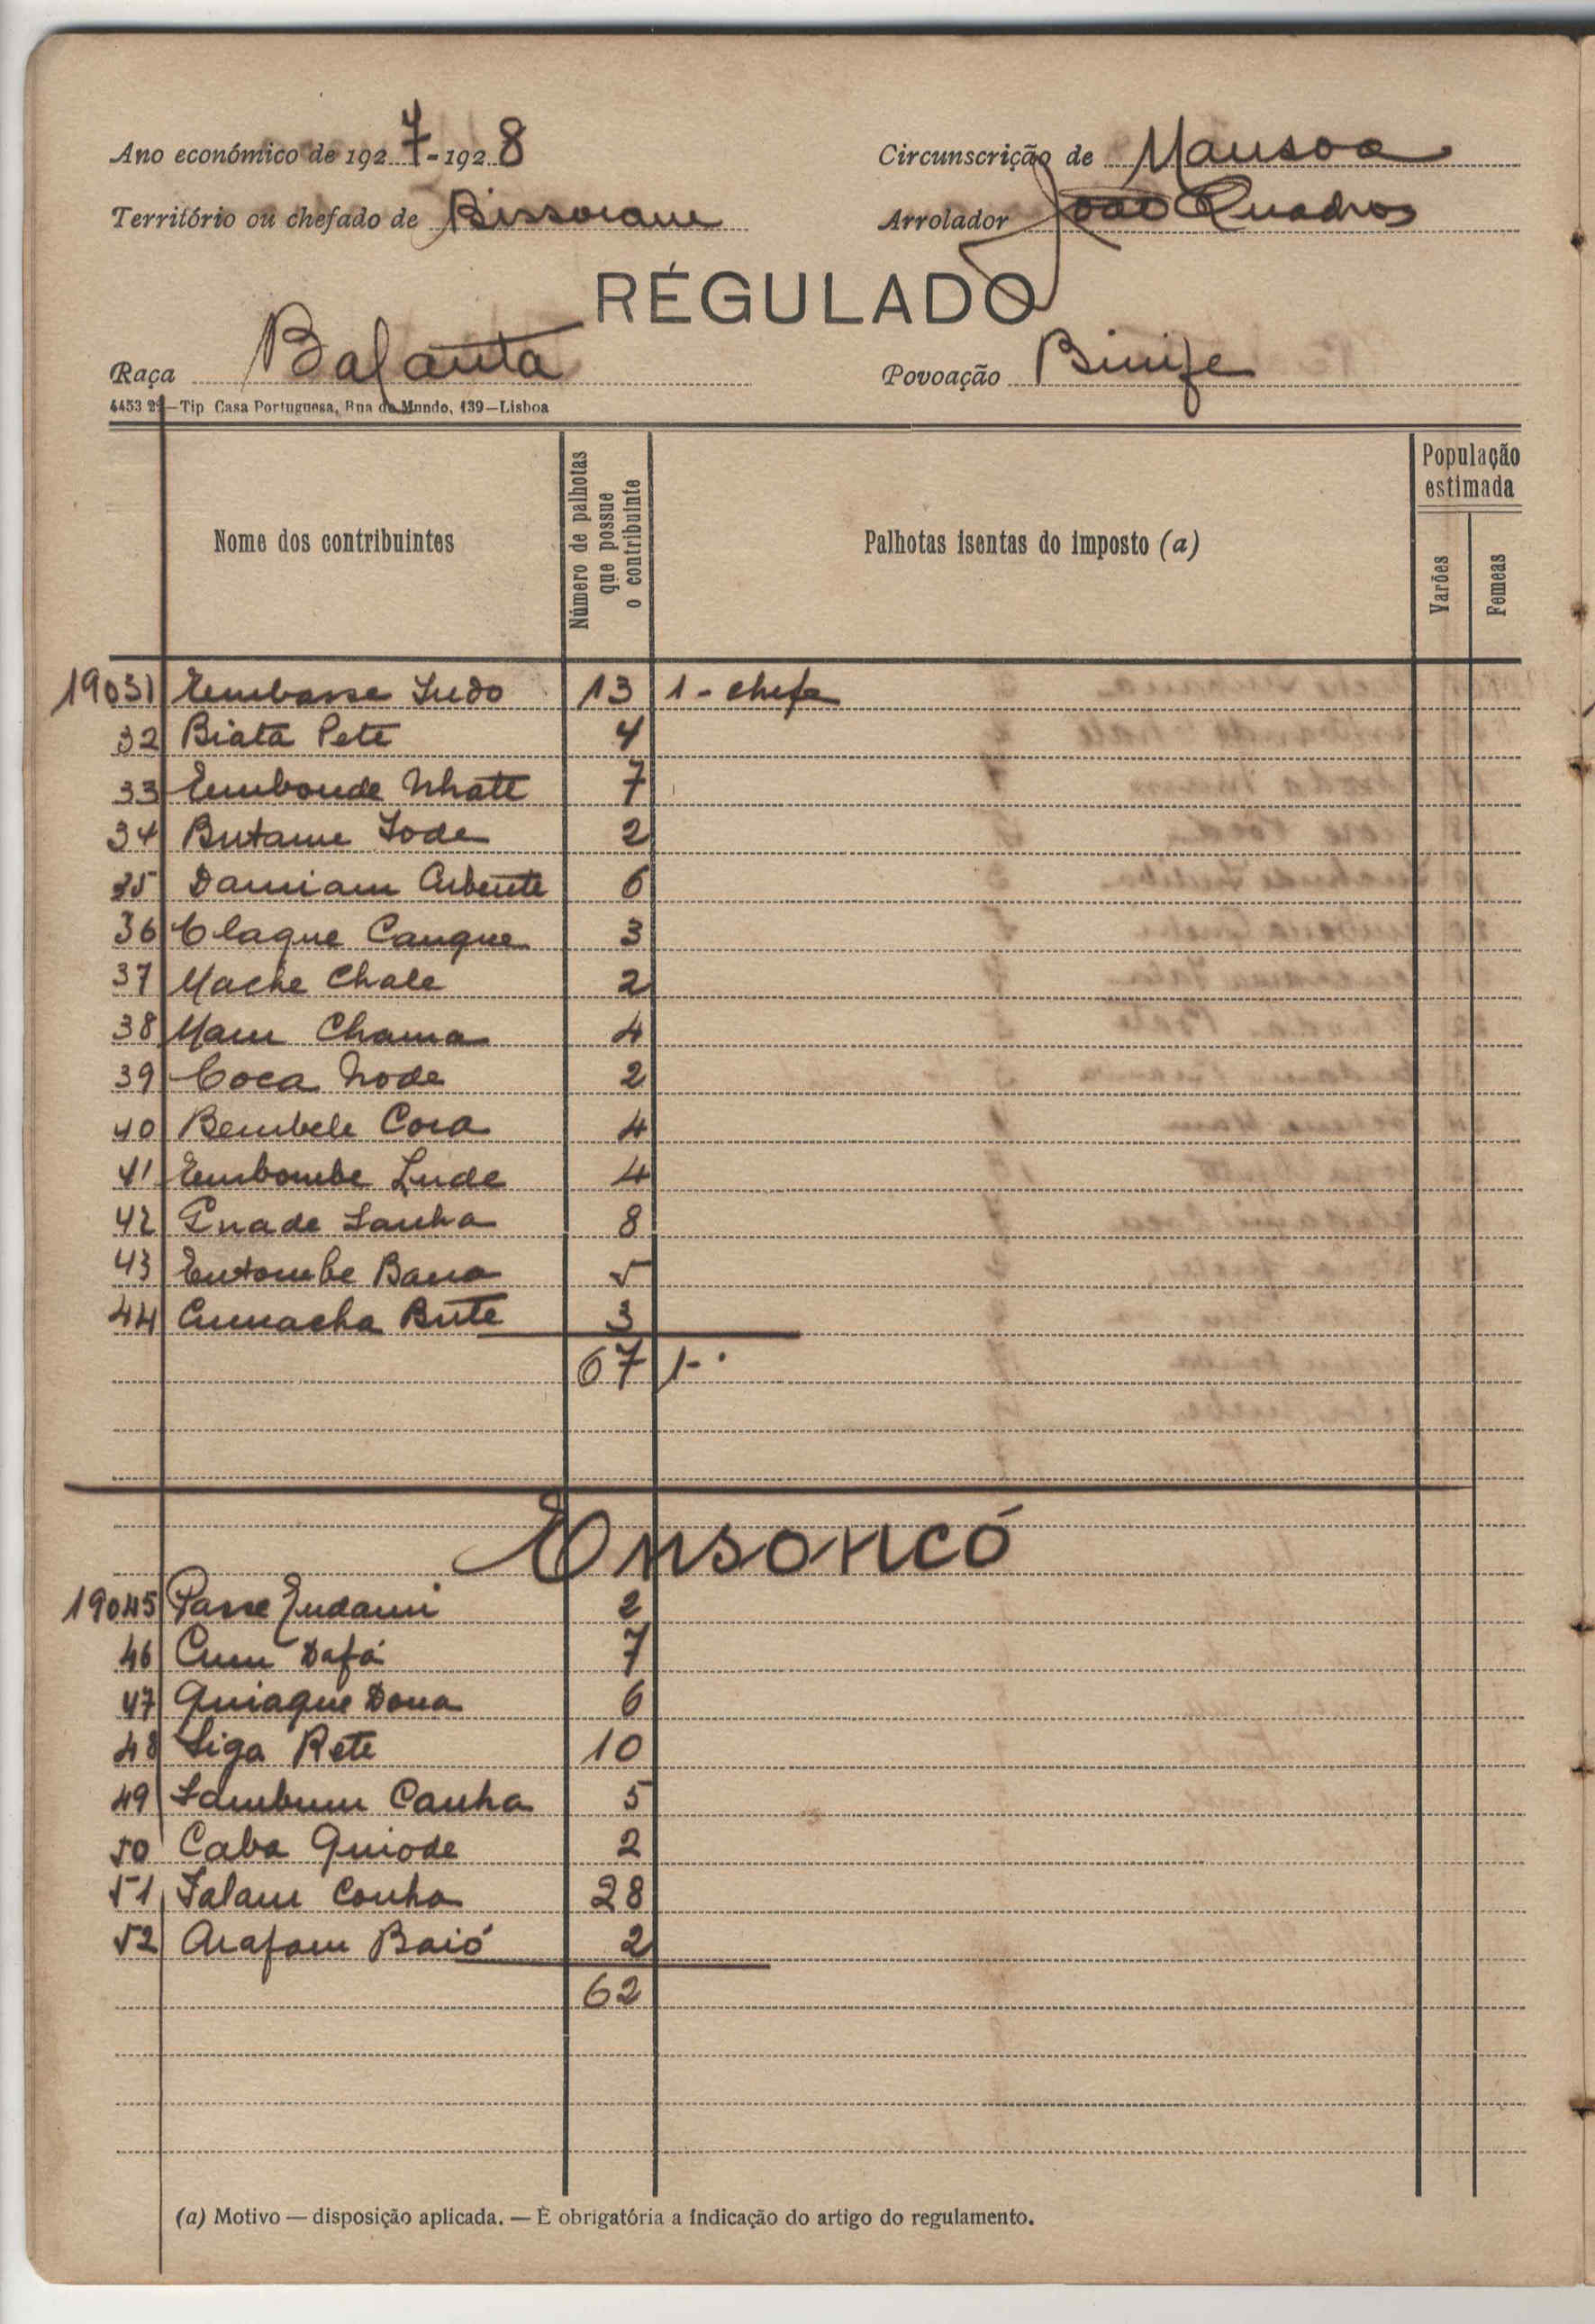 Ano económico de 1927-1928
Circunscrição de Mansoa
Território ou chefado de Bissoram
Arrolador João Quadros
RÉGULADO
Raça Balanta
Povoação Binife
4453 29—Tip Casa Portuguesa, Rua do Mundo, 139—Lisboa
Nome dos contribuintes
Número de palhotas que possue o contribuinte
Palhotas isentas do imposto (a)
População estimada
Varões
Femeas
19031 Embasse Sudo 13 1 - chefe
32 Biatā Pete 4
33 Embonde Nhate 7
34 Butame Iode 2
35 Damiam 6
36 Claque Cangue 3
37 Mache Chale 2
38 Mam Chama 4
39 Coca Node 2
40 Bembele Cora 4
41 Embombe Lude 4
42 Sanha 8
43 Entombe Bana 5
44 Cumacha Bute 3
67 1-.
Ensoncó
19045 Passe Indami 2
46 Cum Dafá 7
47 Quiaque Dona 6
48 Siga Rete 10
49 Sambum Canha 5
50 Caba Quiode 2
51 Salam Conha 28
52 Arafam Baió 2
62
(a) Motivo — disposição aplicada. — È obrigatória a indicação do artigo do regulamento.